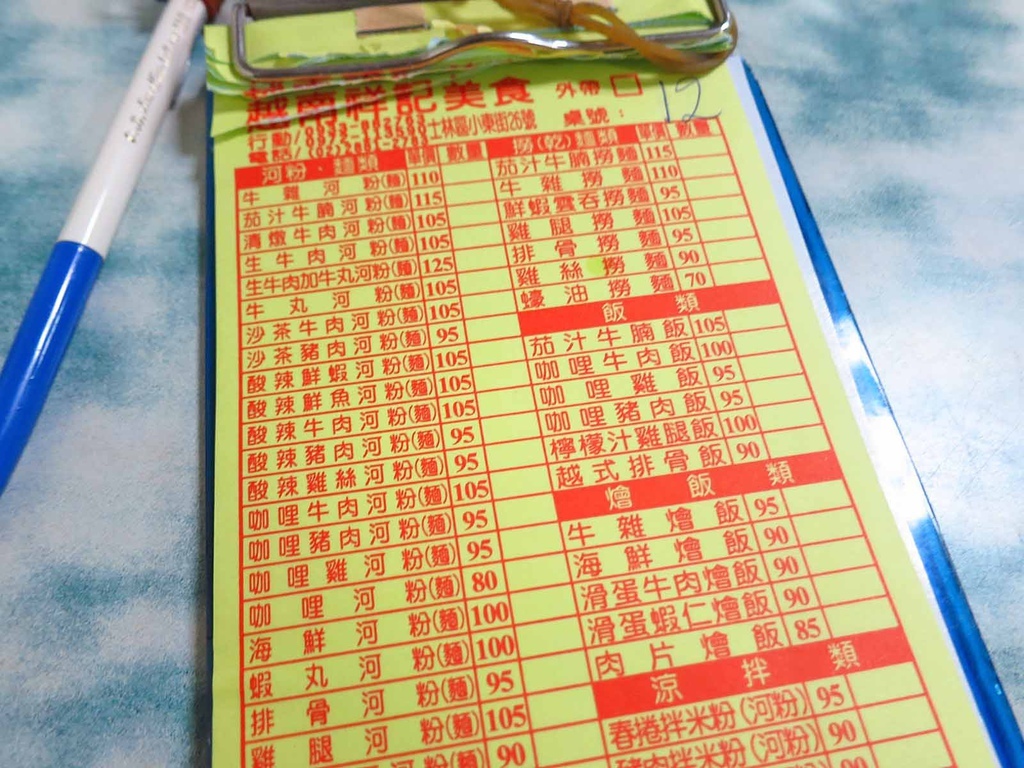 越南祥記美食
外帶
12
士林區小東街26號
桌號：
行動/
電話/
河粉、麵類 單價 數量
牛雜河粉(麵) 110
茄汁牛腩河粉(麵) 115
清燉牛肉河粉(麵) 105
生牛肉河粉(麵) 105
生牛肉加牛丸河粉(麵) 125
牛丸河粉(麵) 105
沙茶牛肉河粉(麵) 105
沙茶豬肉河粉(麵) 95
酸辣鮮蝦河粉(麵) 105
酸辣鮮魚河粉(麵) 105
酸辣牛肉河粉(麵) 105
酸辣豬肉河粉(麵) 95
酸辣雞絲河粉(麵) 95
咖哩牛肉河粉(麵) 105
咖哩豬肉河粉(麵) 95
咖哩雞河粉(麵) 95
咖哩河粉(麵) 80
海鮮河粉(麵) 100
蝦丸河粉(麵) 100
排骨河粉(麵) 95
雞腿河粉(麵) 105
90
撈(乾)麵類 單價 數量
茄汁牛腩撈麵 115
牛雜撈麵 110
鮮蝦雲吞撈麵 95
雞腿撈麵 105
排骨撈麵 95
雞絲撈麵 90
蠔油撈麵 70
飯類
茄汁牛腩飯 105
咖哩牛肉飯 100
咖哩雞飯 95
咖哩豬肉飯 95
檸檬汁雞腿飯 100
越式排骨飯 90
燴飯類
牛雜燴飯 95
海鮮燴飯 90
滑蛋牛肉燴飯 90
滑蛋蝦仁燴飯 90
肉片燴飯 85
涼拌類
春捲拌米粉(河粉) 95
豬肉拌米粉(河粉) 90